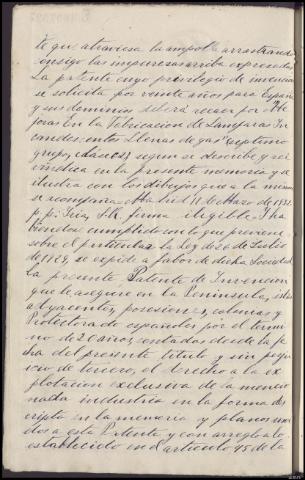 te que atraviesa la ampolla arrastrando
consigo las impurezas arriba expresadas
La patente cuyo privilegio de invención
se solicita por veinte años para España
y sus dominios deberá recaer por Me-
joras En la Fabricacion de Lamparas In-
candescentes Llenas de gas
grupo, clase segun se describe y rei-
vindica en la presente memoria y se
ilustra con los dibujos que a la misma
se acompaña. Madrid 11 de Marzo de 1931.
p.p. firma ilegible. Y ha-
biendose cumplido con lo que previene
sobre el particular la Ley de 26 de Julio
de 1929, se expide a fabor de dicha Sociedad
la presente Patente de Invencion
que le asegure en la Peninsula, islas
adyacentes, posesiones, colonias y
Protectorado españoles por el termi-
no de 20 años, contados desde la fe-
cha del presente titulo y sin perjui-
cio de tercero, el derecho a la ex-
plotacion exclusiva de la mencio-
nada industria en la forma des-
cripta en la memoria y planos uni-
dos a esta Patente y con arreglo a lo
establecido en el articulo 45 de la